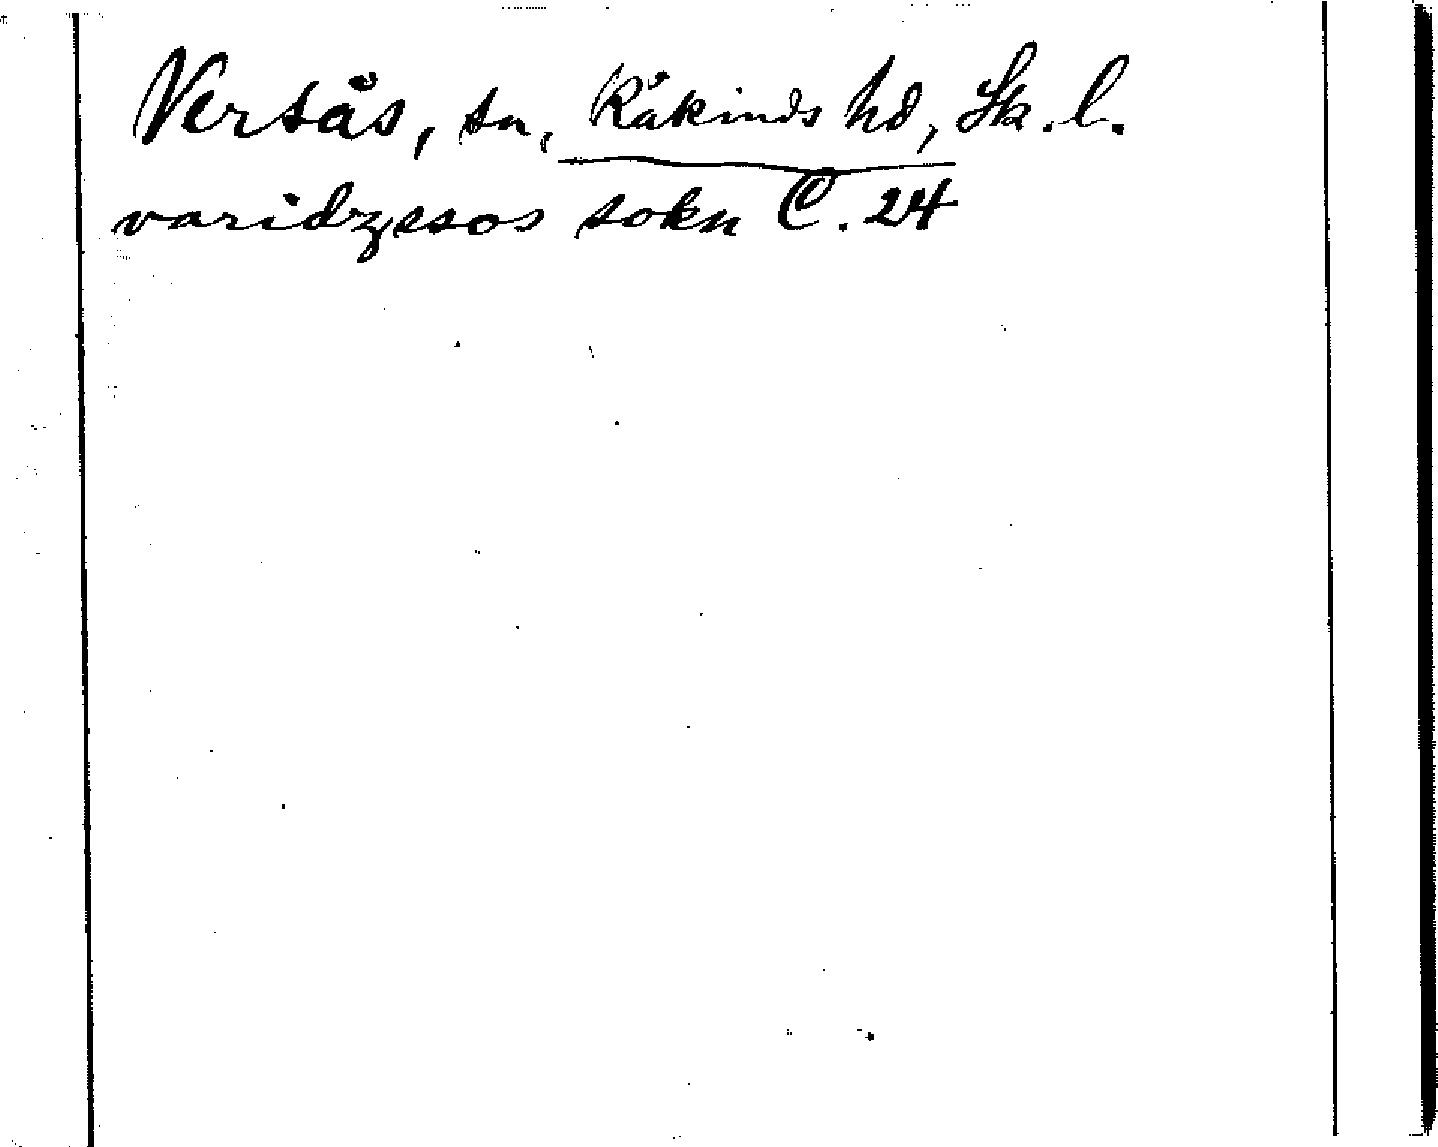 Versås, sn, Kåkinds hd, Sk. l.
varidzesos sokn C. 24